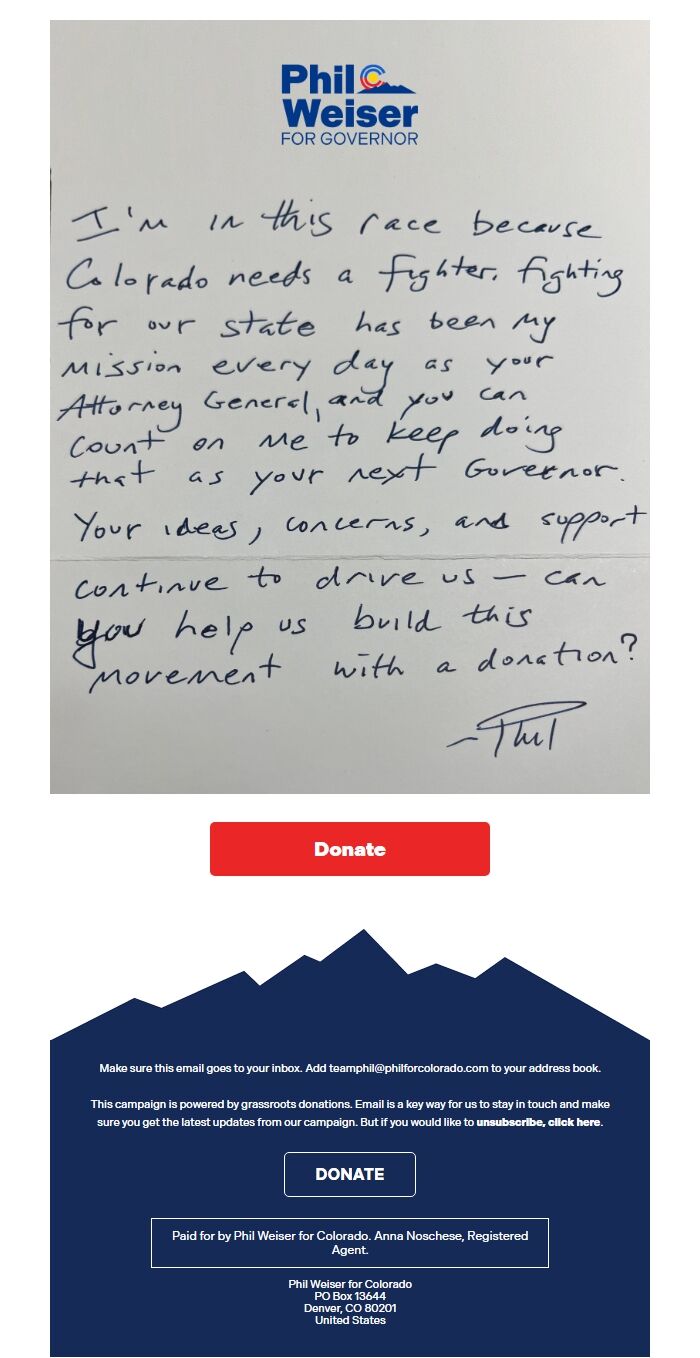 Phil
Weiser
FOR GOVERNOR
I'm in this race because
Colorado needs a fighter. fighting
for our state has been my
mission every day as your
Attorney General, and you can
count on me to keep doing
that as your next Governor.
Your ideas, concerns, and support
continue to drive us — can
you help us build this
movement with a donation?
- Phil
Donate
Make sure this email goes to your inbox. Add teamphil@philforcolorado.com to your address book.
This campaign is powered by grassroots donations. Email is a key way for us to stay in touch and make
sure you get the latest updates from our campaign. But if you would like to unsubscribe, click here.
DONATE
Paid for by Phil Weiser for Colorado. Anna Noschese, Registered
Agent.
Phil Weiser for Colorado
PO Box 13644
Denver, CO 80201
United States